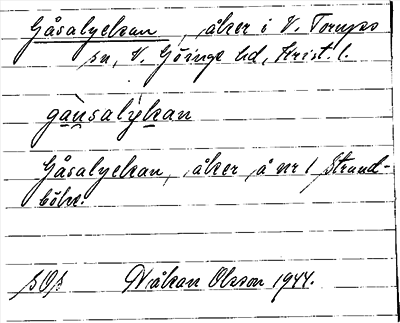 Gåsalyckan, åker i V. Torups
sn, V. Göinge hd, Krist. l.
gasalykan
Gåsalyckan, åker å nr 1 Strand-
Håkan Olsson 1944.